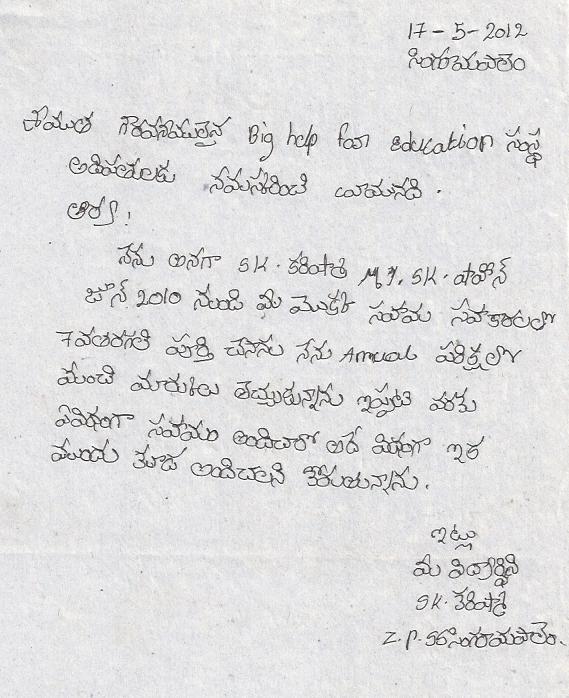 17-5-2012
సింగరాయపాలెం
గౌరవనీయులైన Big help for education సంస్థ
అధిపతులకు నమస్కరించి వ్రాయునది.
ఆర్యా!
నేను అనగా SK. కరిష్మా SK.
జూన్ 2010 నుండి మీ యొక్క సహాయ సహకారాలతో
7వతరగతి పూర్తి చేసాను నేను Annual పరీక్షలో
మంచి మార్కులు తెచ్చుకున్నాను ఇప్పటి వరకు
ఏవిధంగా సహాయం అందించారో అదే విధంగా ఇక
ముందు కూడా అందించాలని కోరుచున్నాను.
ఇట్లు
మీ విద్యార్థిని
SK. కరిష్మా
Z.P. సింగరాయపాలెం.